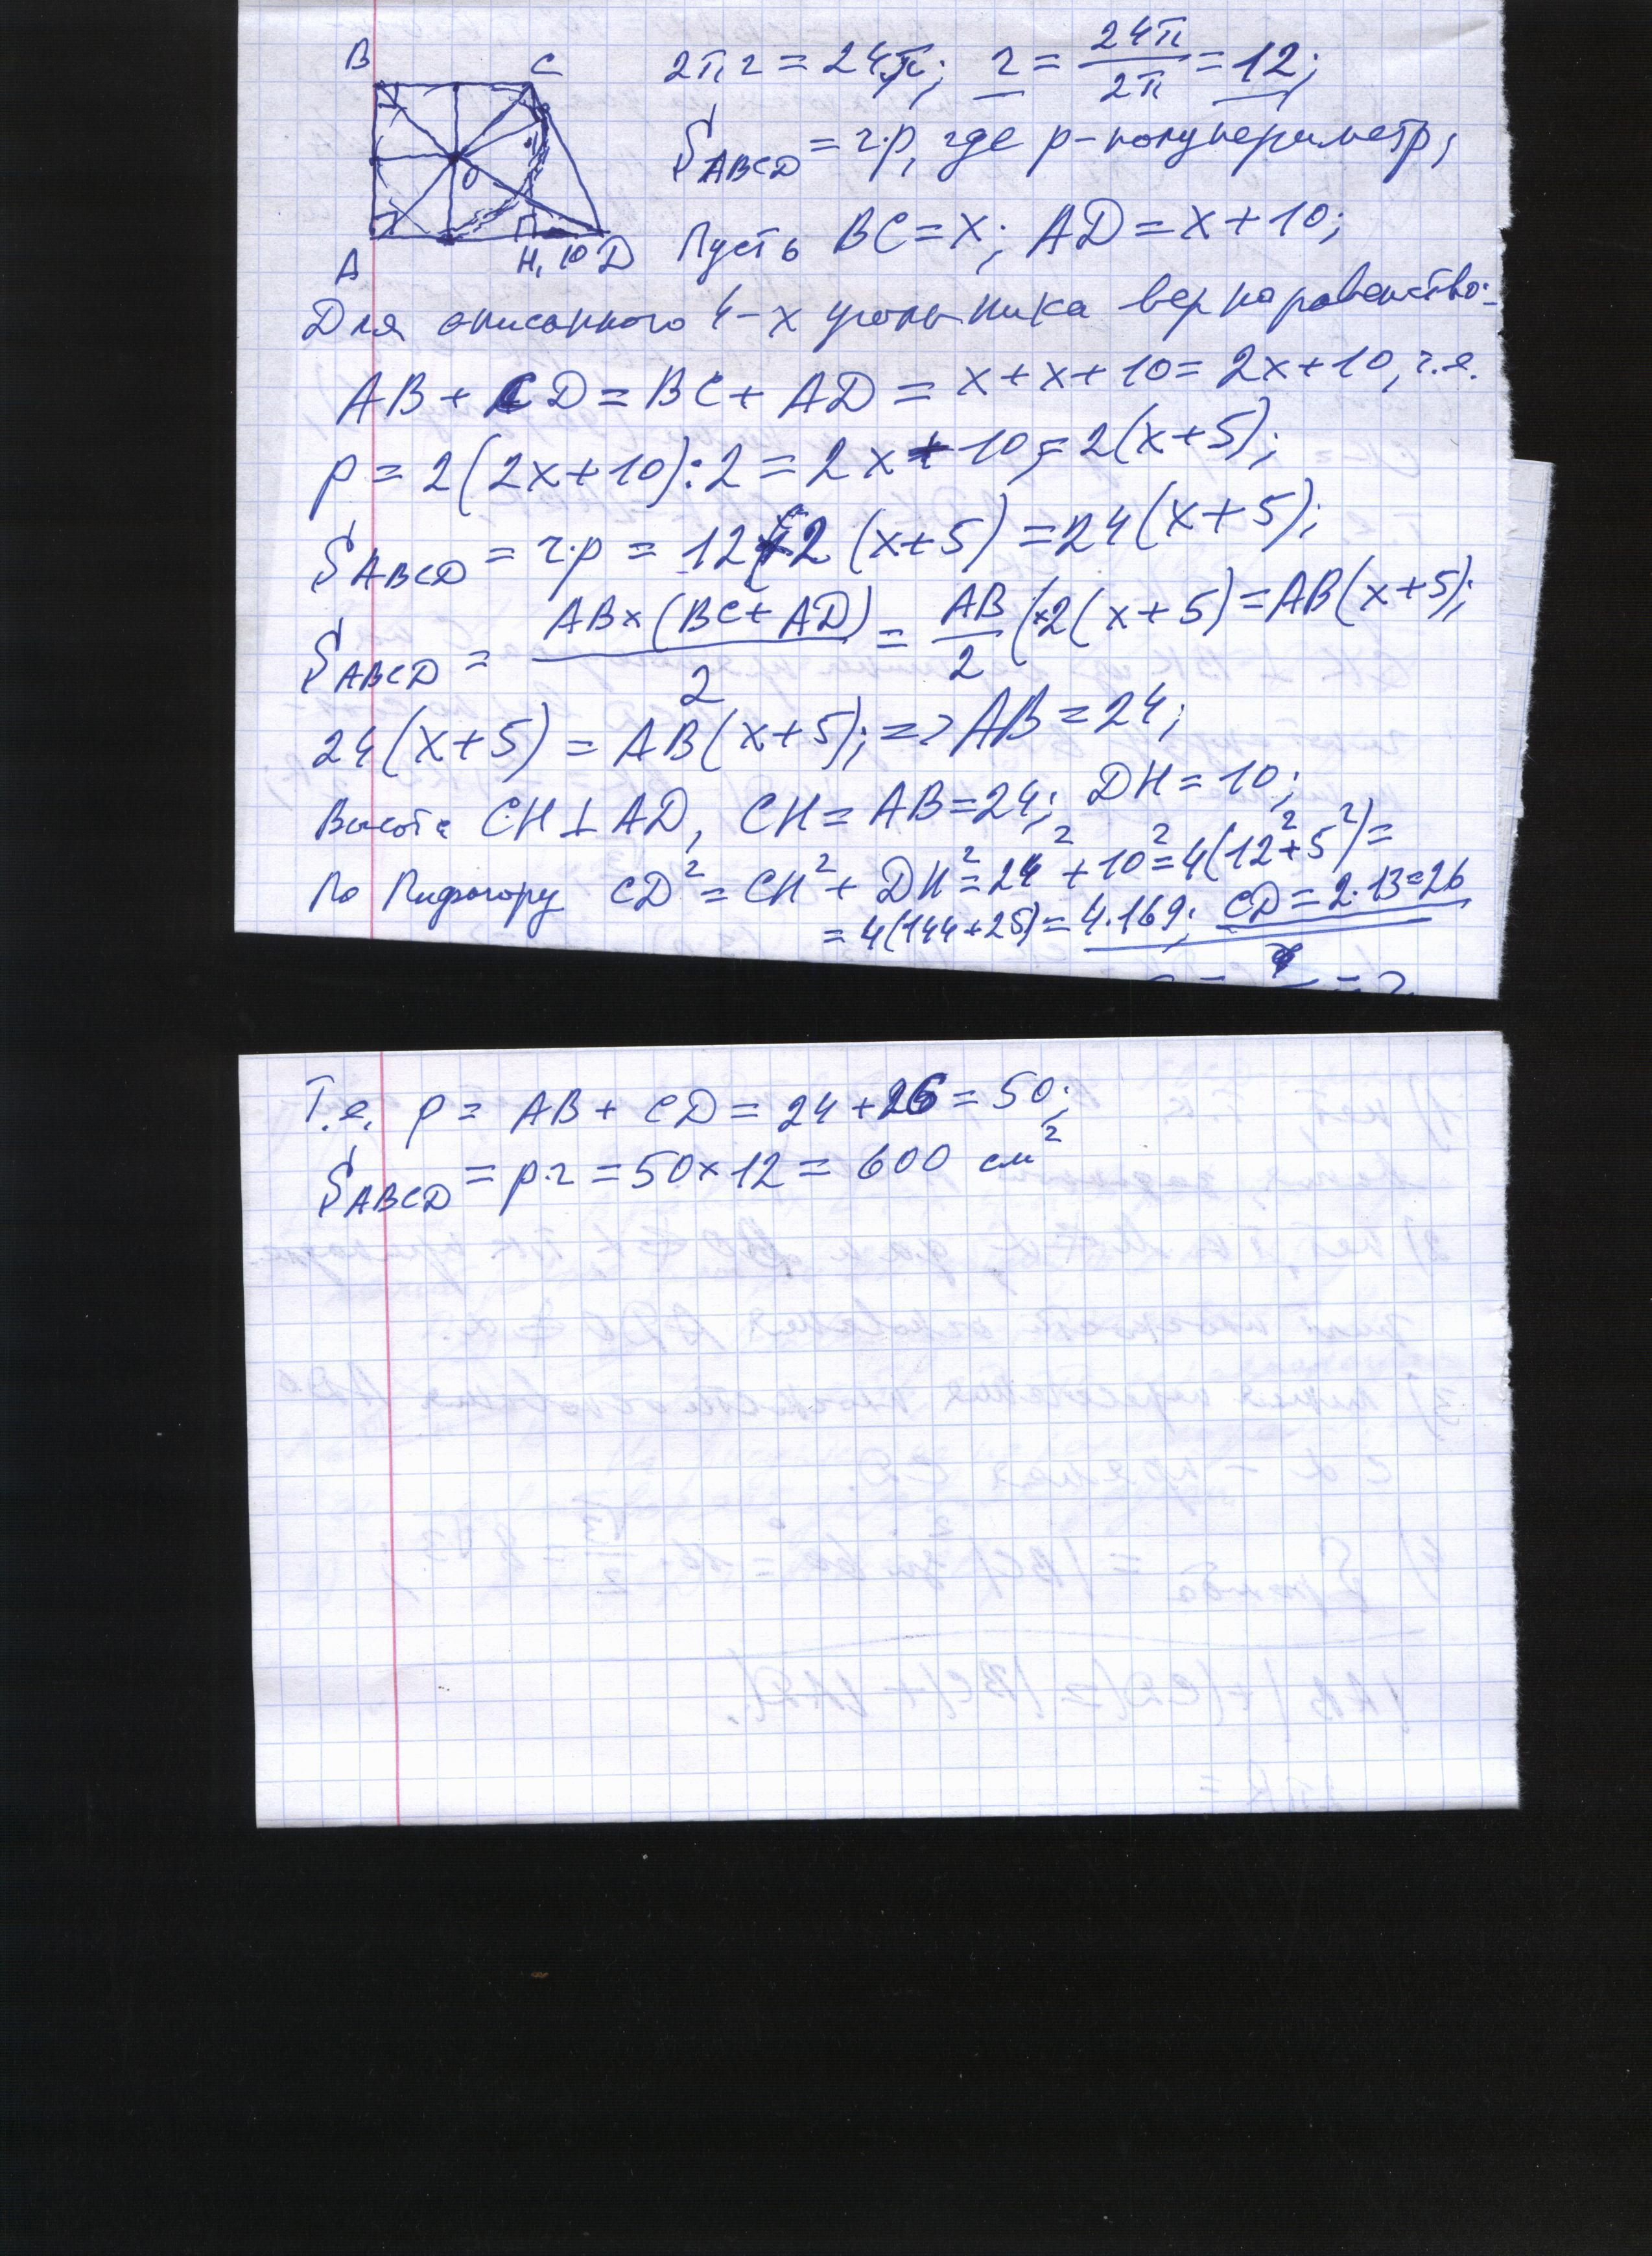 B
C
O
A
H, 10 D
2πr = 24π; r = 24π/2π = 12;
S ABCD = r·p, где p - полупериметр;
Пусть BC = x; AD = x + 10;
Для описанного 4-х угольника верно равенство:
AB + CD = BC + AD = x + x + 10 = 2x + 10, т.е.
p = 2(2x + 10) : 2 = 2x + 10 = 2(x + 5);
S ABCD = r·p = 12·2 (x + 5) = 24(x + 5);
S ABCD = AB × (BC + AD)/2 = AB/2 (×2(x + 5) = AB(x + 5);
24(x + 5) = AB(x + 5); => AB = 24;
Высота CH ⊥ AD, CH = AB = 24; DH = 10;
По Пифагору CD² = CH² + DH² = 24² + 10² = 4(12² + 5²) =
= 4(144 + 25) = 4·169; CD = 2·13 = 26
Т.е. p = AB + CD = 24 + 26 = 50;
S ABCD = p·r = 50 × 12 = 600 см²